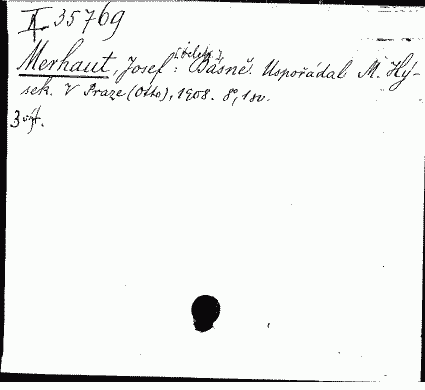 I 35769
Merhaut, Josef: Básně. Uspořádal M. Hý-
sek. V Praze (Otto), 1908. 8°, 1 sv.
3 výt.